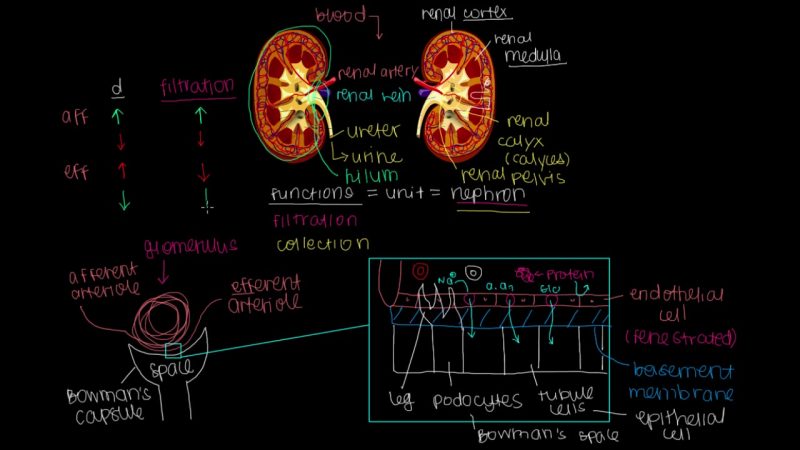 blood
renal cortex
renal
medulla
d
filtration
aff
eff
renal artery
renal vein
ureter
urine
hilum
renal
calyx
(calyces)
renal pelvis
functions = unit = nephron
filtration
collection
glomerulus
afferent
arteriole
efferent
arteriole
space
Bowman's
capsule
Na⊕
a.a.
Glc
Protein
endothelial
cell
(fenestrated)
basement
membrane
leg
podocytes
tubule
cells
epithelial
cell
Bowman's space